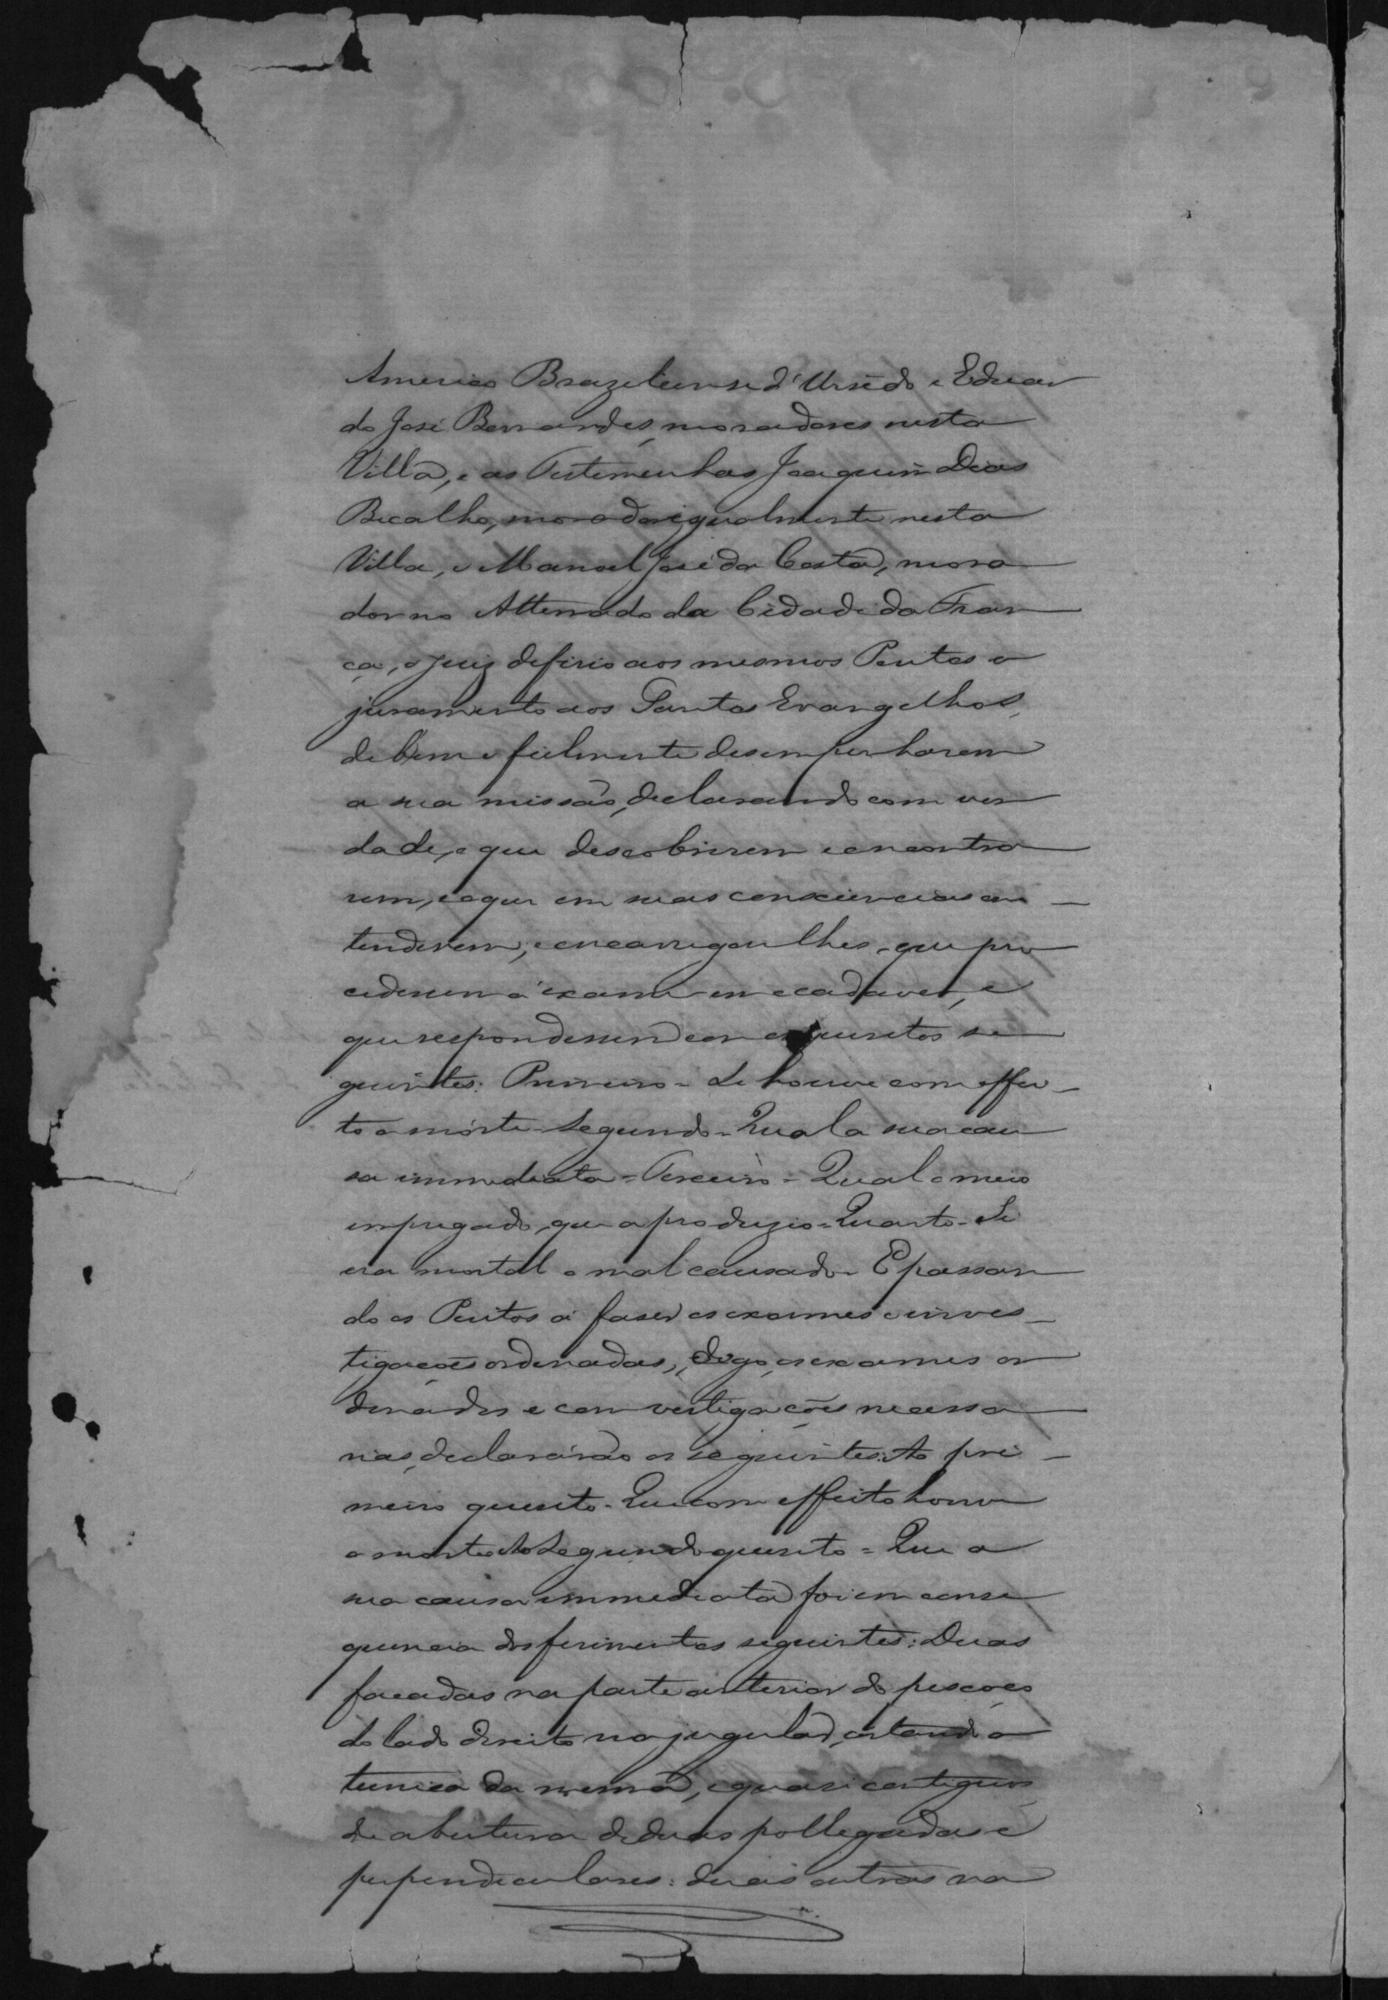 Americo Braziliense d'Ursêdo e Eduar
do José Bernardes, moradores nesta
Villa, e as Testemunhas Joaquim Dias
Bicalho, morador igualmente nesta
Villa, e Manoel José da Costa, mora
dor no Atterrado da Cidade da Fran
ca, o Juiz defirio aos mesmos Peritos o
juramento aos Santos Evangelhos,
de bem e fielmente desempenharem
a sua missão, declarando com ver
dade, o que descobrirem e encontra
rem, e o que em suas consciencias en
tenderem; e encarregou lhes, que pro
cedessem á exame em o cadaver, e
que respondessem aos quesitos se
guintes: Primeiro - Se houve com effei
to a morte - Segundo - Qual a sua cau
sa immediata - Terceiro - Qual o meio
empregado, que a produzio - Quarto - Se
era mortal o mal causado - E passan
do os Peritos á faser os exames e inves
tigações ordenadas, digo, os exames or
denados e com vestigações necessa
rias, declararão os seguintes: Ao pri
meiro quesito - Que com effeito houve
a morte. Ao Segundo quesito = Que a
sua causa immediata foi em conse
quencia dos ferimentos seguintes: Duas
facadas na parte anterior do pescoço
do lado direito na jugular, cortando a
tunica da mesma, e quasi contiguos
de abertura de duas pollegadas e
perpendiculares: duas outras na